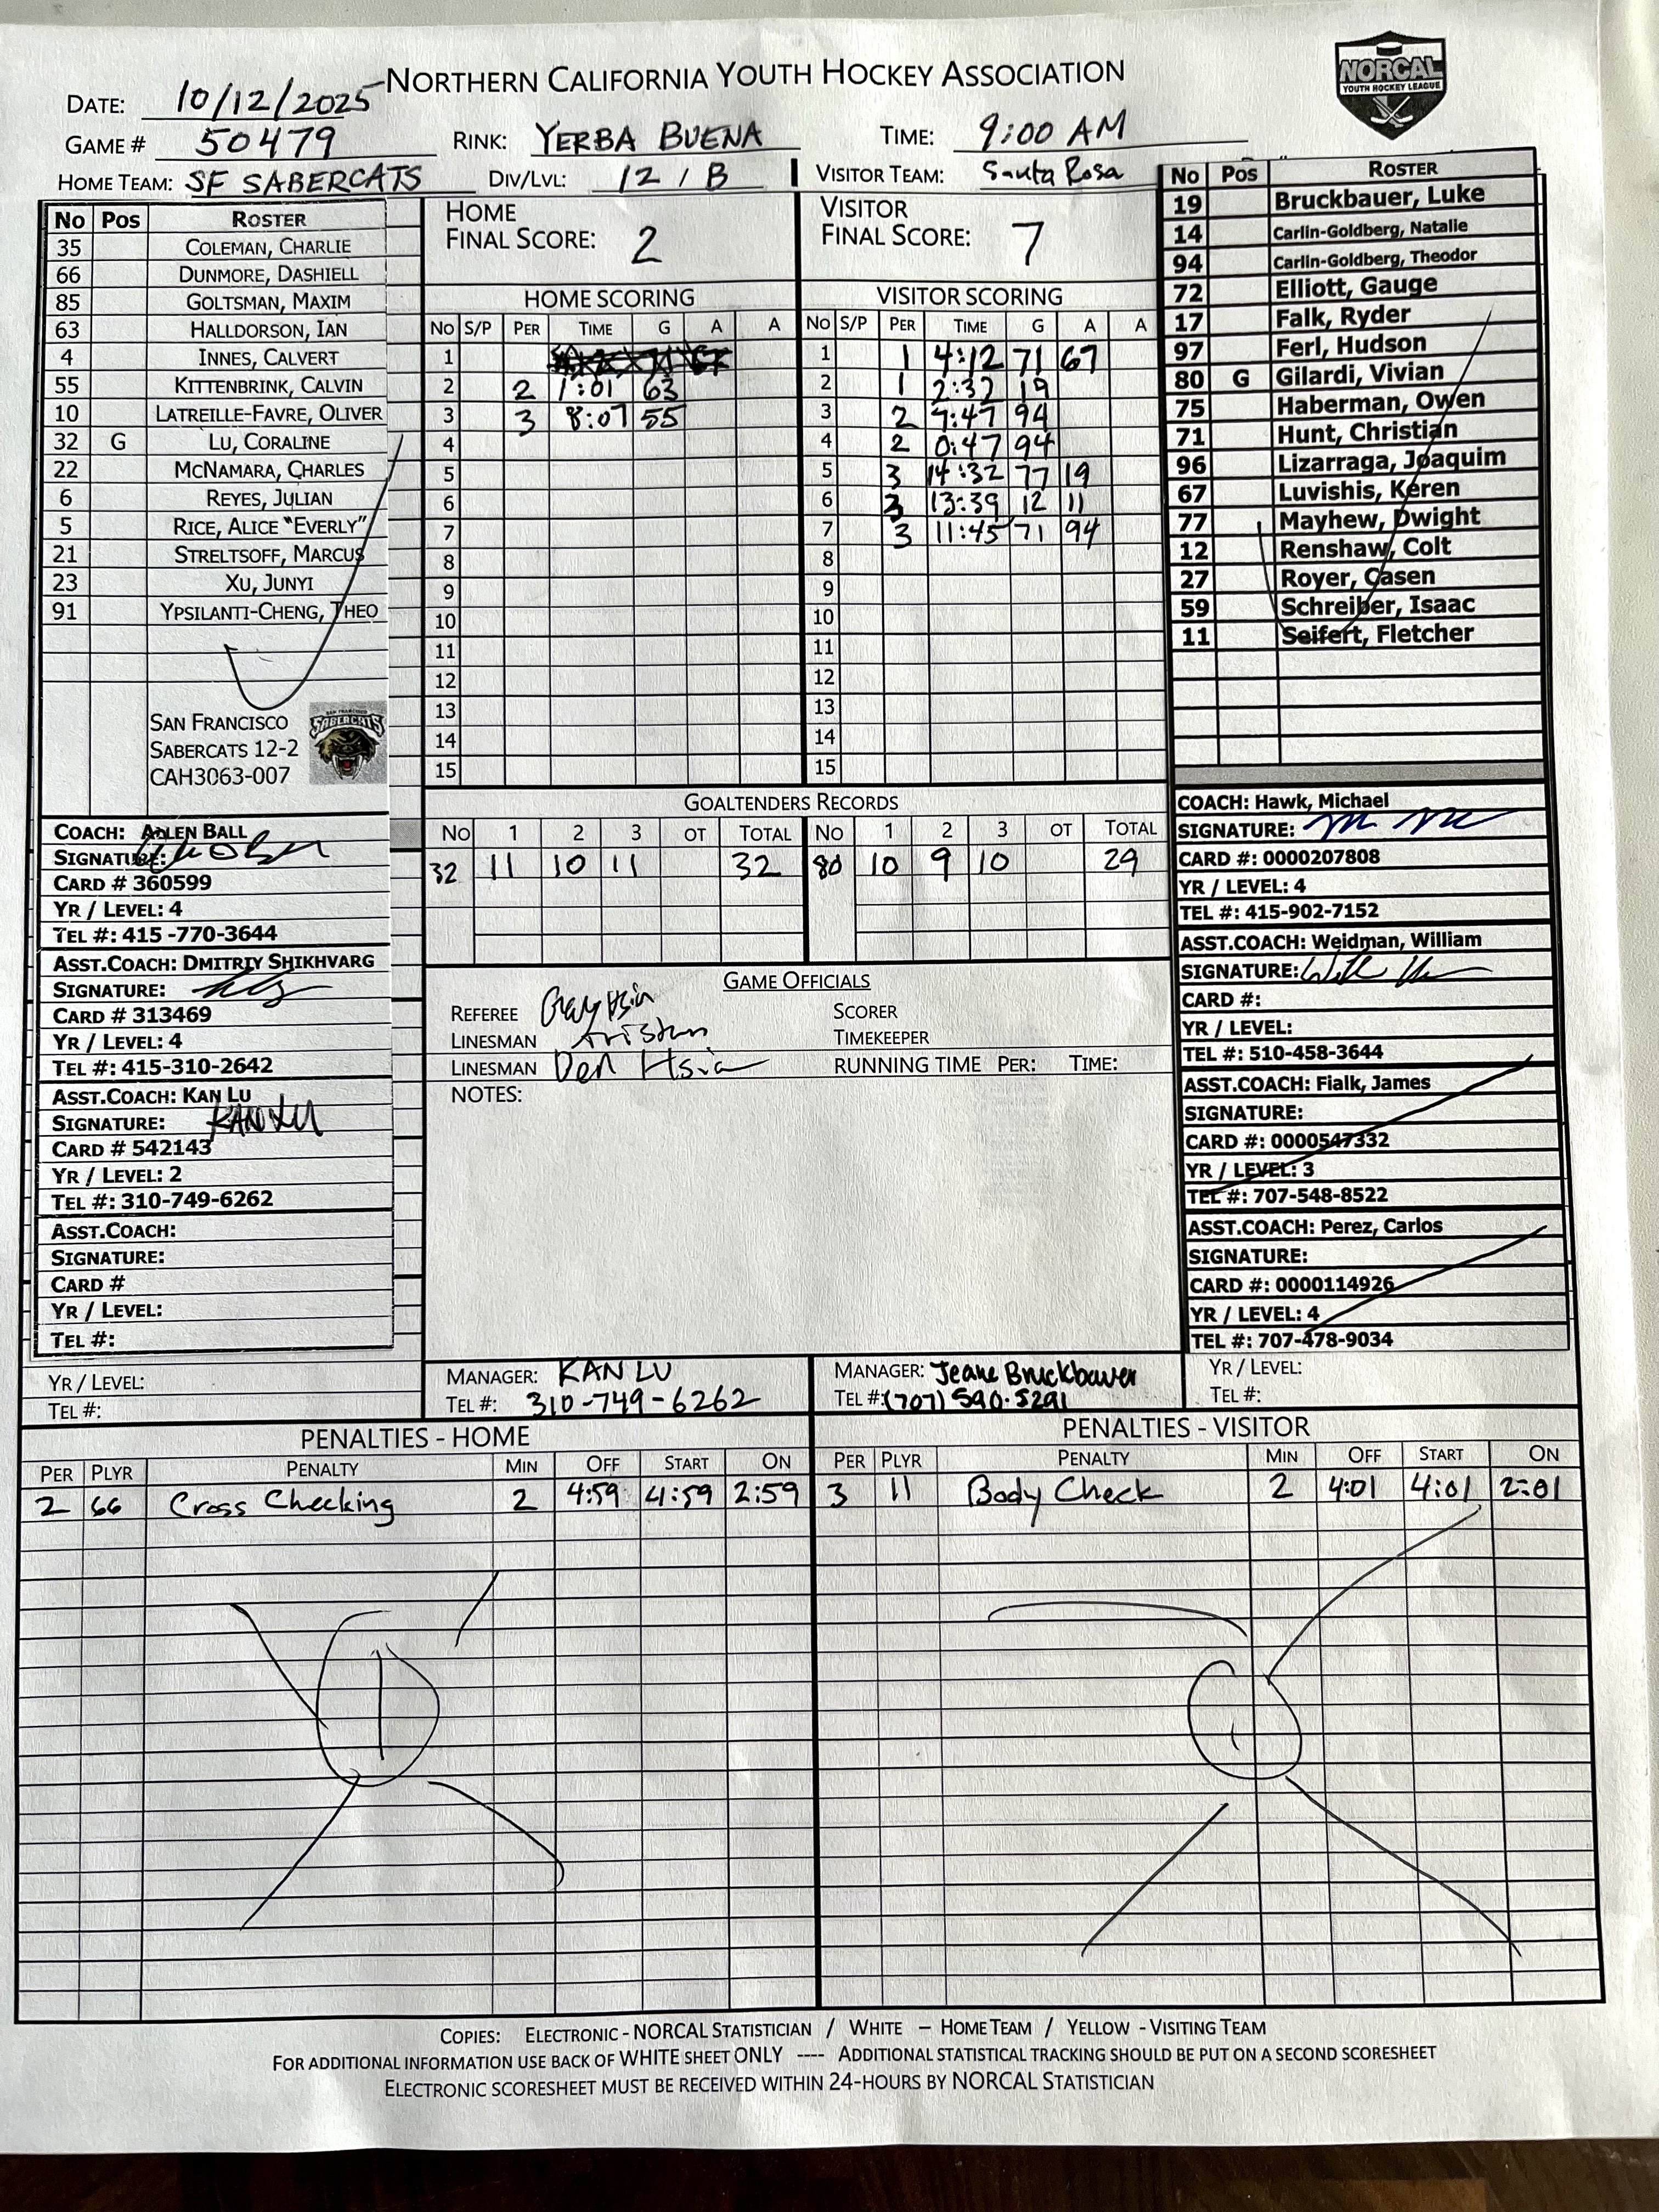 NORTHERN CALIFORNIA YOUTH HOCKEY ASSOCIATION
NORCAL
YOUTH HOCKEY LEAGUE
DATE: 10/12/2025
GAME # 50479 RINK: YERBA BUENA TIME: 9:00 AM
HOME TEAM: SF SABERCATS DIV/LVL: 12 / B VISITOR TEAM: Santa Rosa
No Pos ROSTER
35 COLEMAN, CHARLIE
66 DUNMORE, DASHIELL
85 GOLTSMAN, MAXIM
63 HALLDORSON, IAN
4 INNES, CALVERT
55 KITTENBRINK, CALVIN
10 LATREILLE-FAVRE, OLIVER
32 G LU, CORALINE
22 MCNAMARA, CHARLES
6 REYES, JULIAN
5 RICE, ALICE "EVERLY"
21 STRELTSOFF, MARCUS
23 XU, JUNYI
91 YPSILANTI-CHENG, THEO
SAN FRANCISCO
SABERCATS 12-2
CAH3063-007
SABERCATS
COACH: ADLEN BALL
SIGNATURE:
CARD # 360599
YR / LEVEL: 4
TEL #: 415 -770-3644
ASST.COACH: DMITRIY SHIKHVARG
SIGNATURE:
CARD # 313469
YR / LEVEL: 4
TEL #: 415-310-2642
ASST.COACH: KAN LU
SIGNATURE: KAN LU
CARD # 542143
YR / LEVEL: 2
TEL #: 310-749-6262
ASST.COACH:
SIGNATURE:
CARD #
YR / LEVEL:
TEL #:
YR / LEVEL:
TEL #:
HOME
FINAL SCORE: 2
HOME SCORING
No S/P PER TIME G A A
1
2 2 1:01 63
3 3 8:07 55
4
5
6
7
8
9
10
11
12
13
14
15
VISITOR
FINAL SCORE: 7
VISITOR SCORING
No S/P PER TIME G A A
1 1 4:12 71 67
2 1 2:32 19
3 2 :47 94
4 2 0:47 94
5 3 14:32 77 19
6 3 13:39 12 11
7 3 11:45 71 94
8
9
10
11
12
13
14
15
GOALTENDERS RECORDS
No 1 2 3 OT TOTAL No 1 2 3 OT TOTAL
32 11 10 11 32 80 10 9 10 29
GAME OFFICIALS
REFEREE Hsia SCORER
LINESMAN TIMEKEEPER
LINESMAN Den Hsia RUNNING TIME PER: TIME:
NOTES:
MANAGER: KAN LU MANAGER: Jeane Bruckbauer
TEL #: 310-749-6262 TEL #: (707) 590-5291
No Pos ROSTER
19 Bruckbauer, Luke
14 Carlin-Goldberg, Natalie
94 Carlin-Goldberg, Theodor
72 Elliott, Gauge
17 Falk, Ryder
97 Ferl, Hudson
80 G Gilardi, Vivian
75 Haberman, Owen
71 Hunt, Christian
96 Lizarraga, Joaquim
67 Luvishis, Keren
77 Mayhew, Dwight
12 Renshaw, Colt
27 Royer, Casen
59 Schreiber, Isaac
11 Seifert, Fletcher
COACH: Hawk, Michael
SIGNATURE:
CARD #: 0000207808
YR / LEVEL: 4
TEL #: 415-902-7152
ASST.COACH: Weidman, William
SIGNATURE:
CARD #:
YR / LEVEL:
TEL #: 510-458-3644
ASST.COACH: Fialk, James
SIGNATURE:
CARD #: 0000547332
YR / LEVEL: 3
TEL #: 707-548-8522
ASST.COACH: Perez, Carlos
SIGNATURE:
CARD #: 0000114926
YR / LEVEL: 4
TEL #: 707-478-9034
YR / LEVEL:
TEL #:
PENALTIES - HOME
PER PLYR PENALTY MIN OFF START ON
2 66 Cross Checking 2 4:59 4:59 2:59
PENALTIES - VISITOR
PER PLYR PENALTY MIN OFF START ON
3 11 Body Check 2 4:01 4:01 2:01
COPIES: ELECTRONIC - NORCAL STATISTICIAN / WHITE – HOME TEAM / YELLOW - VISITING TEAM
FOR ADDITIONAL INFORMATION USE BACK OF WHITE SHEET ONLY ---- ADDITIONAL STATISTICAL TRACKING SHOULD BE PUT ON A SECOND SCORESHEET
ELECTRONIC SCORESHEET MUST BE RECEIVED WITHIN 24-HOURS BY NORCAL STATISTICIAN